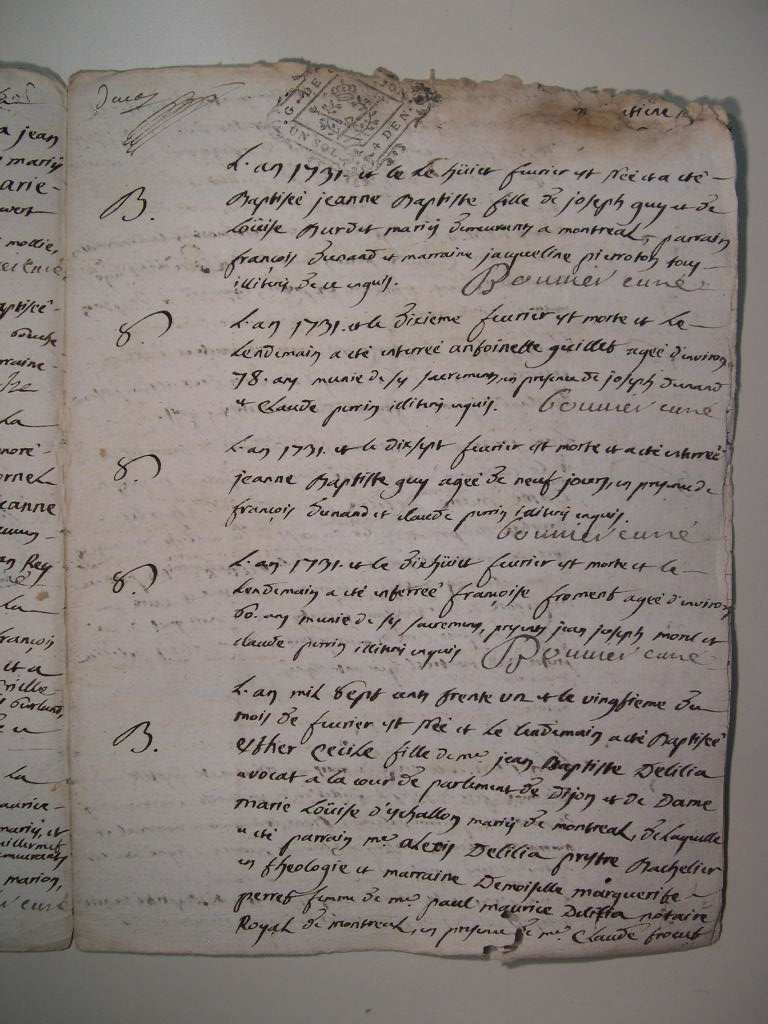 a jean
marië
arie-
mollie,
Baptiseé-
marraine-
La
ornel
jeanne
an Rey
La
françois
et a
La
maurice-
marië, et
demeurants
marion,
curé
G. DE
UN SOL 4 DEN
L'an 1731. et le Le hüict feurier est Neé et a eté-
B. Baptiseé jeanne Baptiste fille de joseph guy et de
Loüise Burdet mariës demeurants a montreal, parrain
françois Dunand et marraine jacqueline pierroton tous-
illiterés de ce enquis. Bonnier curé
L'an 1731. et le dixieme feurier est morte et Le-
S. Lendemain a eté enterreé antoinette güillet ageé d'environ
78. ans munie de ses sacrements, en presence de joseph Dunand
et Claude perrin illiterés enquis. bonnier curé
L'an 1731. et le dixsept feurier est morte et a eté enterreé
S. jeanne Baptiste guy ageé de neuf jours, en presence de
françois Dunand et claude perrin illiterés enquis.
bonnier curé
L'an 1731. et le dixhüict feurier est morte et le-
S. Lendemain a eté enterreé françoise froment ageé d'environ
60. ans munie de ses sacremens, presents jean joseph morel et
claude perrin illiterés enquis Bonnier curé
L'an mil Sept cents trente un et le vingtieme du
mois de feurier est Neé et Le lendemain a eté Baptiseé
B. esther Cecile fille de mre jean Baptiste Delilia
avocat a la cour de parlement de Dijon et de Dame
marie Loüise d'eschallon mariës de montreal, de laquelle
a eté parrain mre alexis Delilia prestre Bachelier
en theologie et marraine Demoiselle marguerite-
perret femme de mre paul maurice Delilia notaire
Royal de montreal, en presence de mre Claude